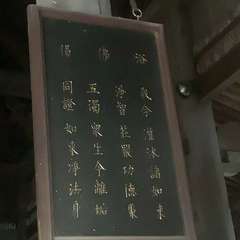 浴佛偈
我今灌沐諸如來
淨智莊嚴功德聚
五濁眾生令離垢
同證如來淨法身